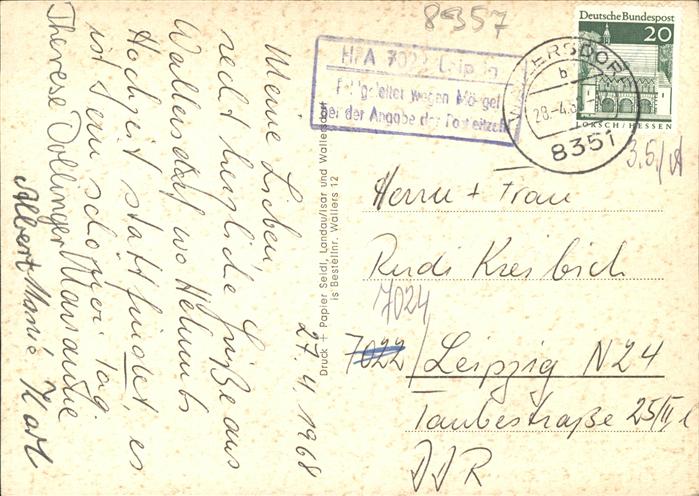 8357
Meine Lieben
recht herzliche Grüße aus
Wallersdorf wo Helmuts
Hochzeit stattfindet, es
ist ein schöner Tag
Marianne
Therese Dollinger
Albert Maria Karl
27.4.1968
Druck + Papier Seidl, Landau/Isar und Wallersdorf
is Bestellnr. Wallers 12
HPA 7022 Leipzig
Fehlgeleitet wegen Mängel
bei der Angabe der Postleitzahl
WALLERSDORF
b
28.-4.6
8351
Deutsche Bundespost
20
LORSCH/HESSEN
3.5./
Herrn + Frau
Rudi Kreibich
7024
7022 / Leipzig N24
Taubestraße 25/II
DDR